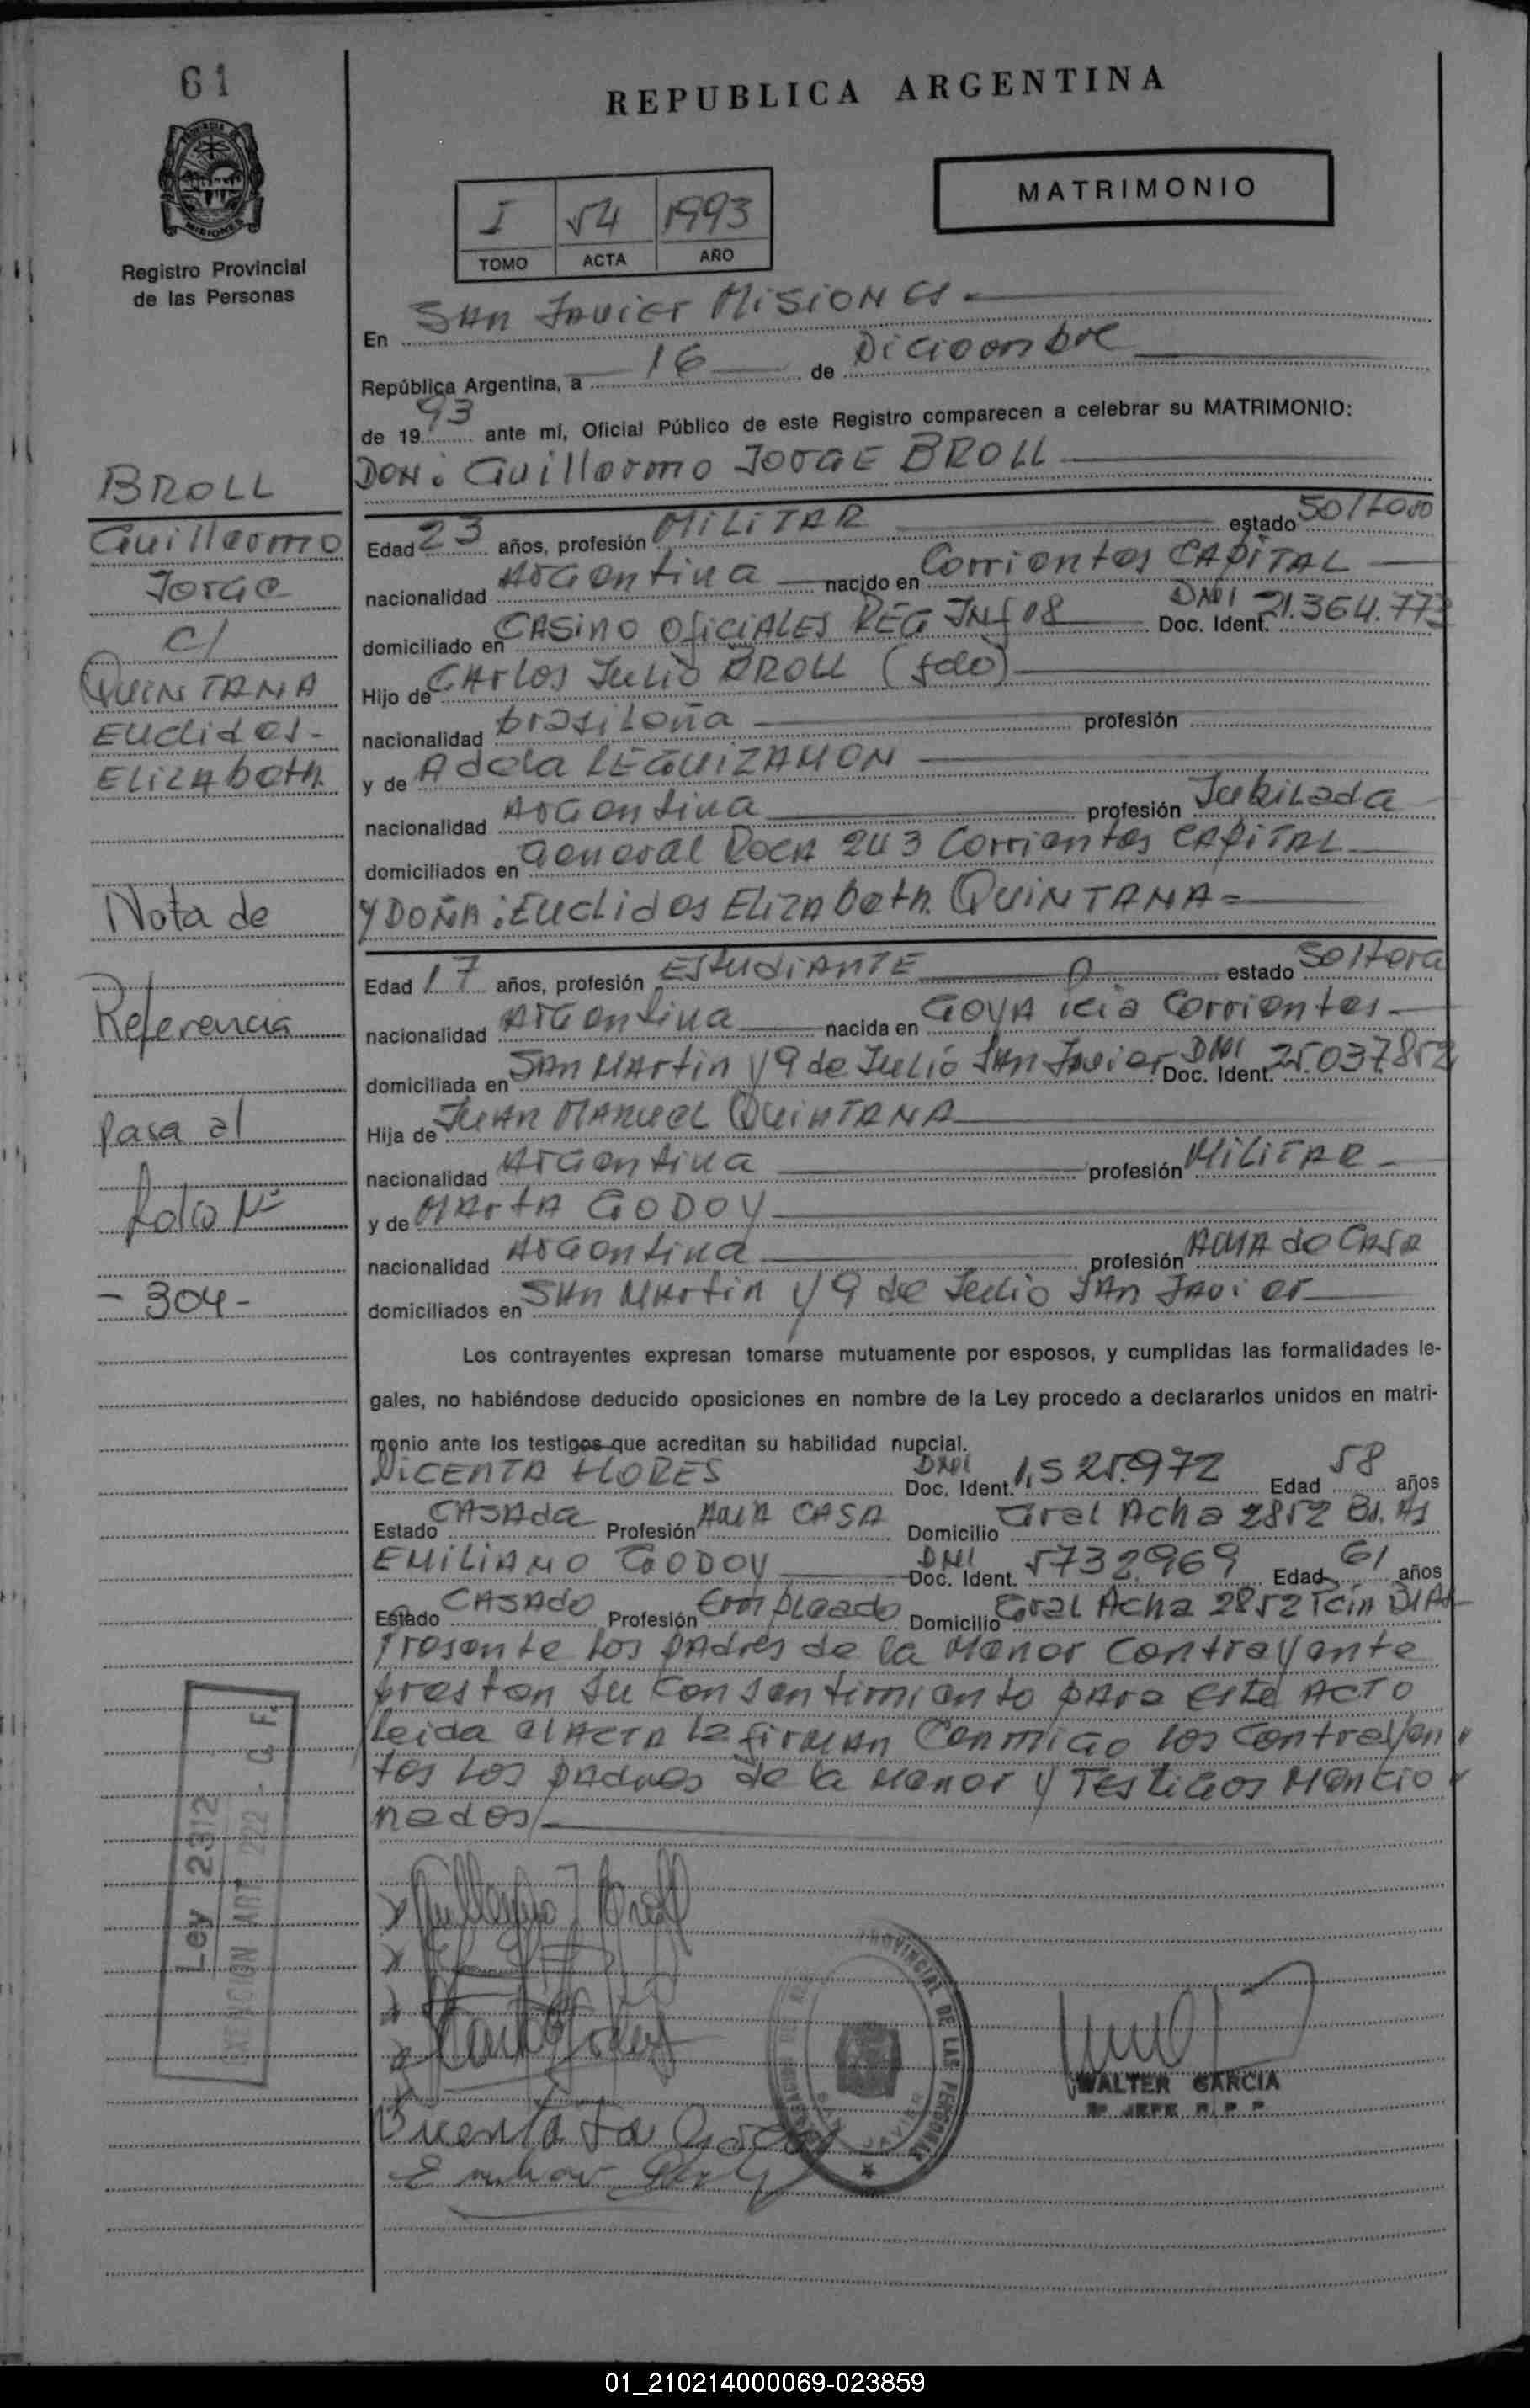 61
REPUBLICA ARGENTINA
MATRIMONIO
I 54 1993
TOMO ACTA AÑO
Registro Provincial
de las Personas
En SAN JAVIER MISIONES.
República Argentina, a 16 de Diciembre
de 1993 ante mí, Oficial Público de este Registro comparecen a celebrar su MATRIMONIO:
DON: Guillermo JORGE BROLL
Edad 23 años, profesión MILITAR estado Soltero
nacionalidad Argentina nacido en Corrientes CAPITAL
domiciliado en CASINO OFICIALES REG INF 08 Doc. Ident. DNI 21.364.773
Hijo de CARLOS JULIO BROLL (fdo)
nacionalidad brasileña profesión
y de Adela LEGUIZAMON
nacionalidad Argentina profesión Jubilada
domiciliados en General ROCA 243 Corrientes CAPITAL
Y DOÑA: Euclides Elizabeth QUINTANA=
Edad 17 años, profesión ESTUDIANTE estado Soltera
nacionalidad Argentina nacida en GOYA Corrientes
domiciliada en SAN MARTIN y 9 de Julio SAN Javier Doc. Ident. DNI 25.037.852
Hija de JUAN MANUEL QUINTANA
nacionalidad Argentina profesión MILITAR
y de MARTA GODOY
nacionalidad Argentina profesión AMA de CASA
domiciliados en SAN MARTIN y 9 de Julio SAN Javier
Los contrayentes expresan tomarse mutuamente por esposos, y cumplidas las formalidades le-
gales, no habiéndose deducido oposiciones en nombre de la Ley procedo a declararlos unidos en matri-
monio ante los testigos que acreditan su habilidad nupcial.
VICENTA FLORES Doc. Ident. DNI 1.525.972 Edad 58 años
Estado CASADA Profesión AMA CASA Domicilio Gral Acha 2852 Bs. As
EMILIANO GODOY Doc. Ident. DNI 5732.969 Edad 61 años
Estado CASADO Profesión Empleado Domicilio Gral Acha 2852
Presente los padres de la Menor contrayente
prestan su consentimiento para este ACTO
Leida el ACTA la firman conmigo los contrayen
tes los padres de la menor y Testigos Mencio
nados/
Guillermo J Broll
Marta Godoy
PROVINCIAL DE LAS PERSONAS
WALTER GARCIA
JEFE R. P. P.
BROLL
Guillermo
Jorge
c/
QUINTANA
Euclides-
ELIZABETH.
Nota de
Referencia
pasa al
folio Nº
- 304-
Ley 2312
ART 222 - C. F.
01_210214000069-023859